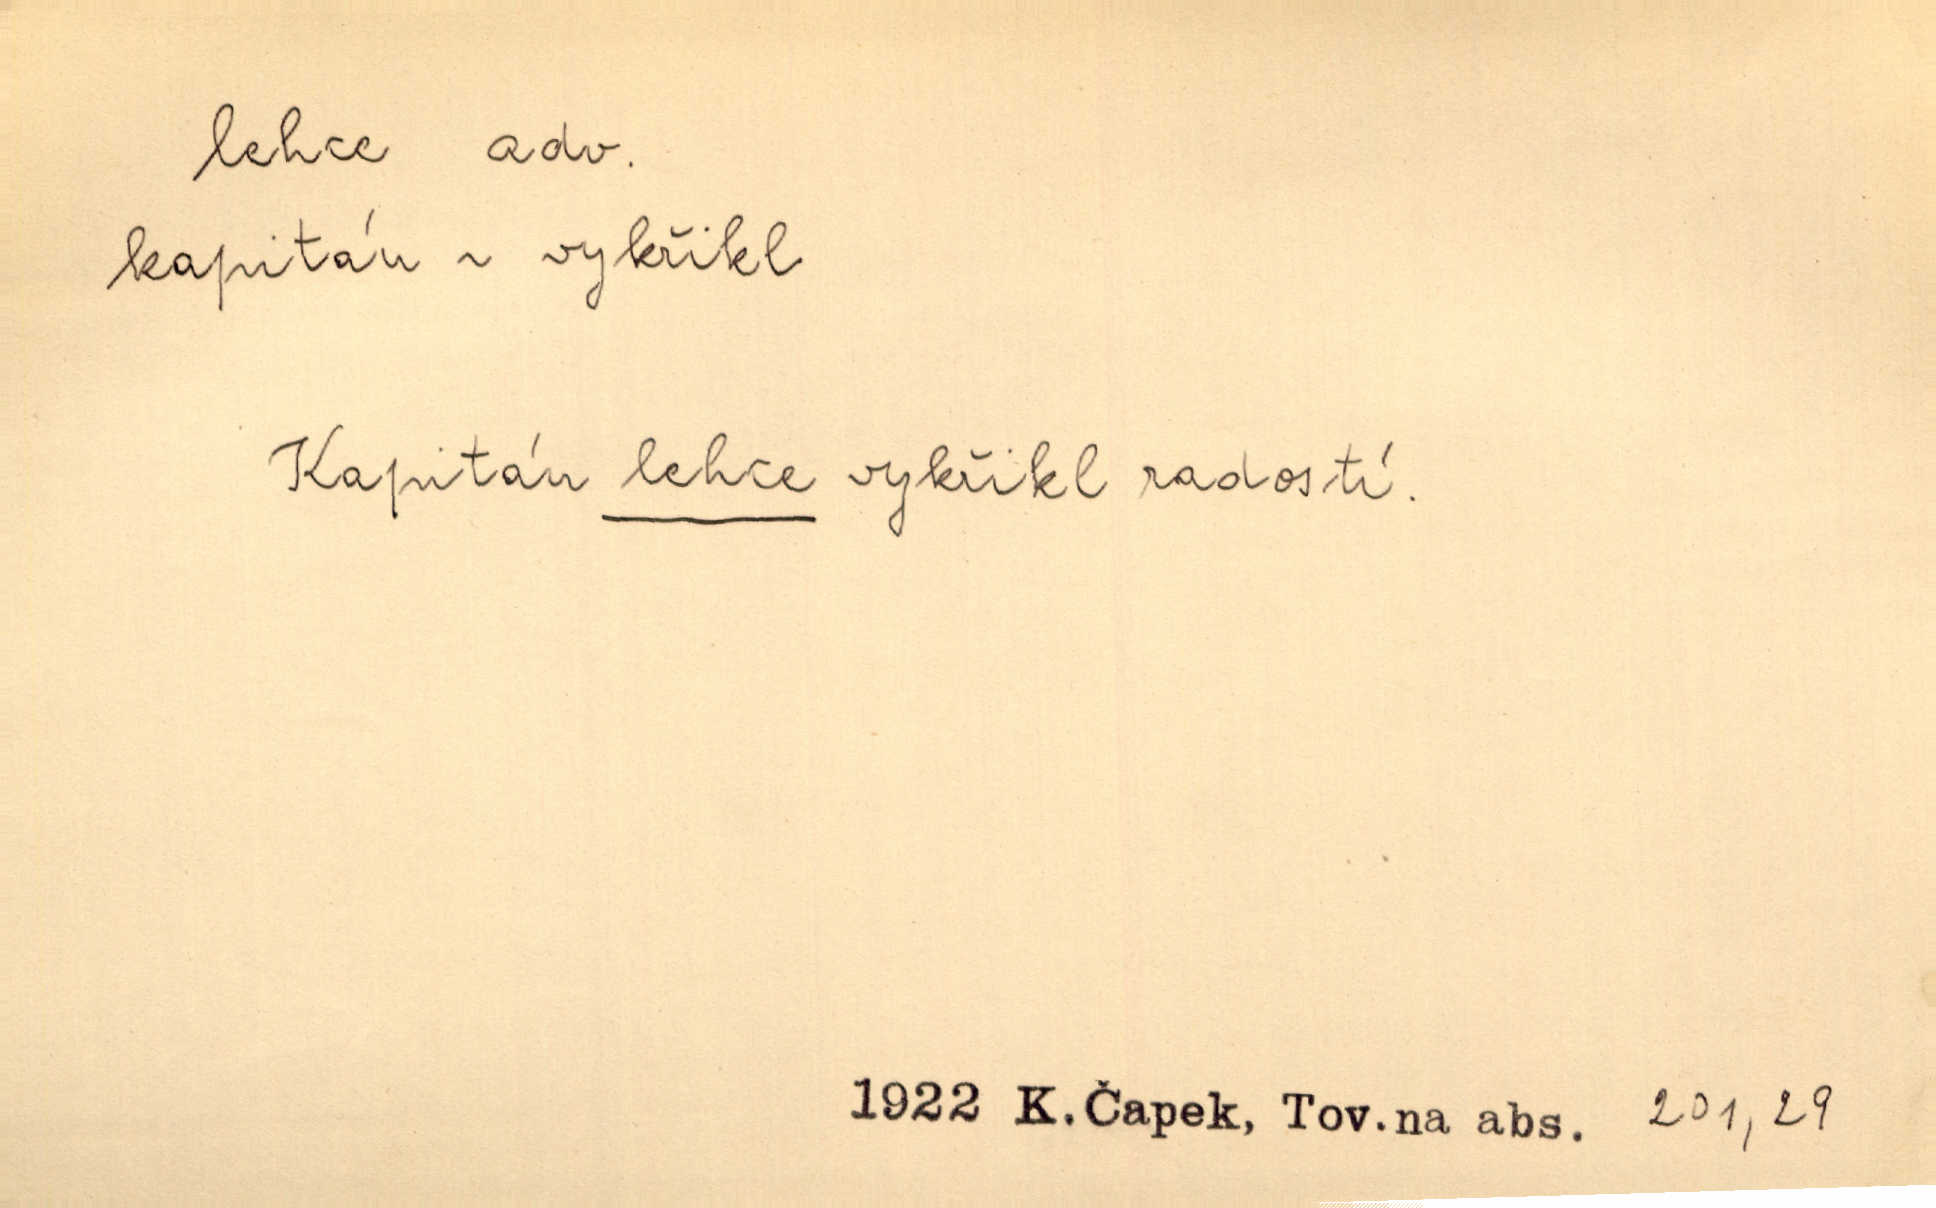 lehce adv.
kapitán ~ vykřikl
Kapitán lehce vykřikl radostí.
1922 K. Čapek, Tov. na abs. 201, 29